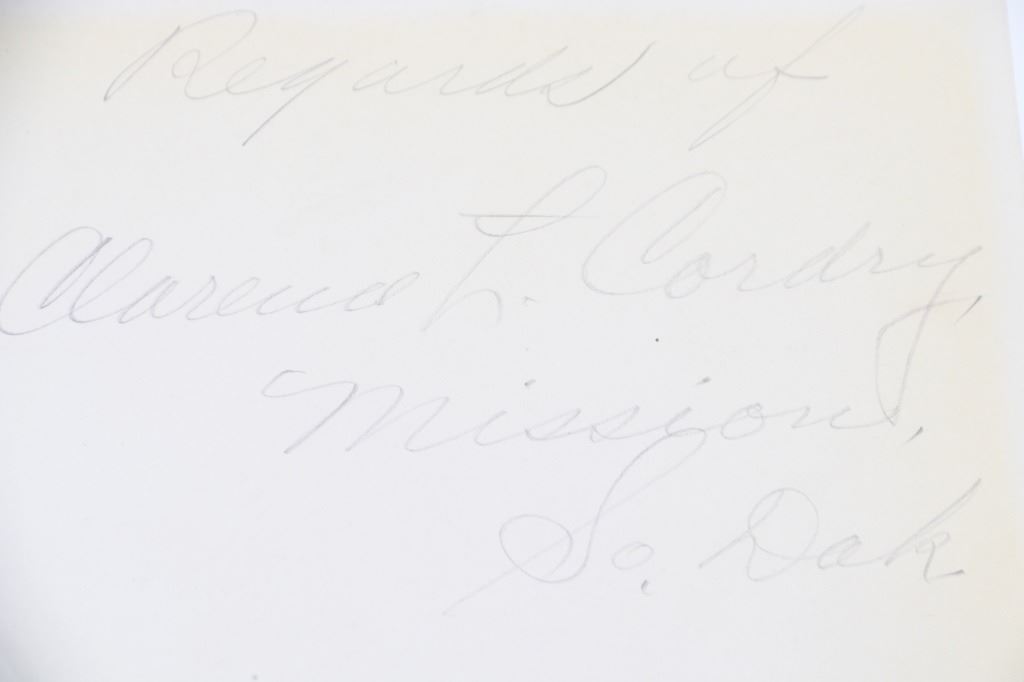 Regards of
Clarence L. Cordry,
Mission,
So. Dak